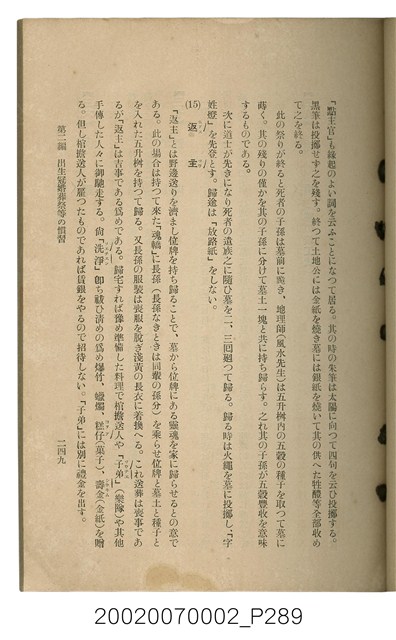 「點主官」も緣起のよい詞を云ふことになつて居る。其の時の朱筆は太陽に向つて四句を云ひ投擲する。
黑筆は投擲せず之を殘す。終つて土地公には金紙を燒き墓には銀紙を燒いて其の供へた牲醴等全部收め
て之を終る。
此の祭りが終ると死者の子孫は墓前に跪き、地理師(風水先生)は五升桝内の五穀の種子を取つて墓に
蒔く。其の殘りの僅かを其の子孫に分けて墓土一塊と共に持ち歸らす。之れ其の子孫が五穀豐收を意味
するものである。
次に道士が先きになり死者の遺族之に隨ひ墓を二、三囘廻つて歸る。歸る時は火繩を墓に投擲し、「字
姓燈」を先登とす。歸途は「放路紙」をしない。
(15) 返主
「返主」とは野邊送りを濟まし位牌を持ち歸ることで、墓から位牌にある靈魂を家に歸らせるとの意で
ある。此の場合は持つて來た「魂轎」に長孫(長孫なきときは同輩の孫分)を乘らせ位牌と墓土と種子と
を入れた五升桝を持つて歸る。又長孫の服裝は喪服を脫ぎ淺黃の長衣に着換へる。これ送葬は喪事であ
るが「返主」は吉事である爲めである。歸宅すれば豫め準備した料理で棺擔送人や「子弟」(樂隊)や其他
手傳した人々に御馳走する。尙「洗淨」卽ち祓ひ淸めの爲め爆竹、蠟燭、糕仔(菓子)、壽金(金紙)を贈
る。但し棺擔送人が雇つたものであれば賃銀をやるので招待しない。「子弟」には別に禮金を出す。
第二編 出生冠婚葬祭等の慣習
二四九
20020070002_P289